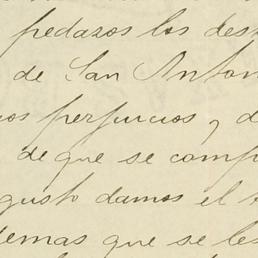 pedazos los des
de San Anton
os perjuicios y d
de que se comp
gusto damos el
emas que se les